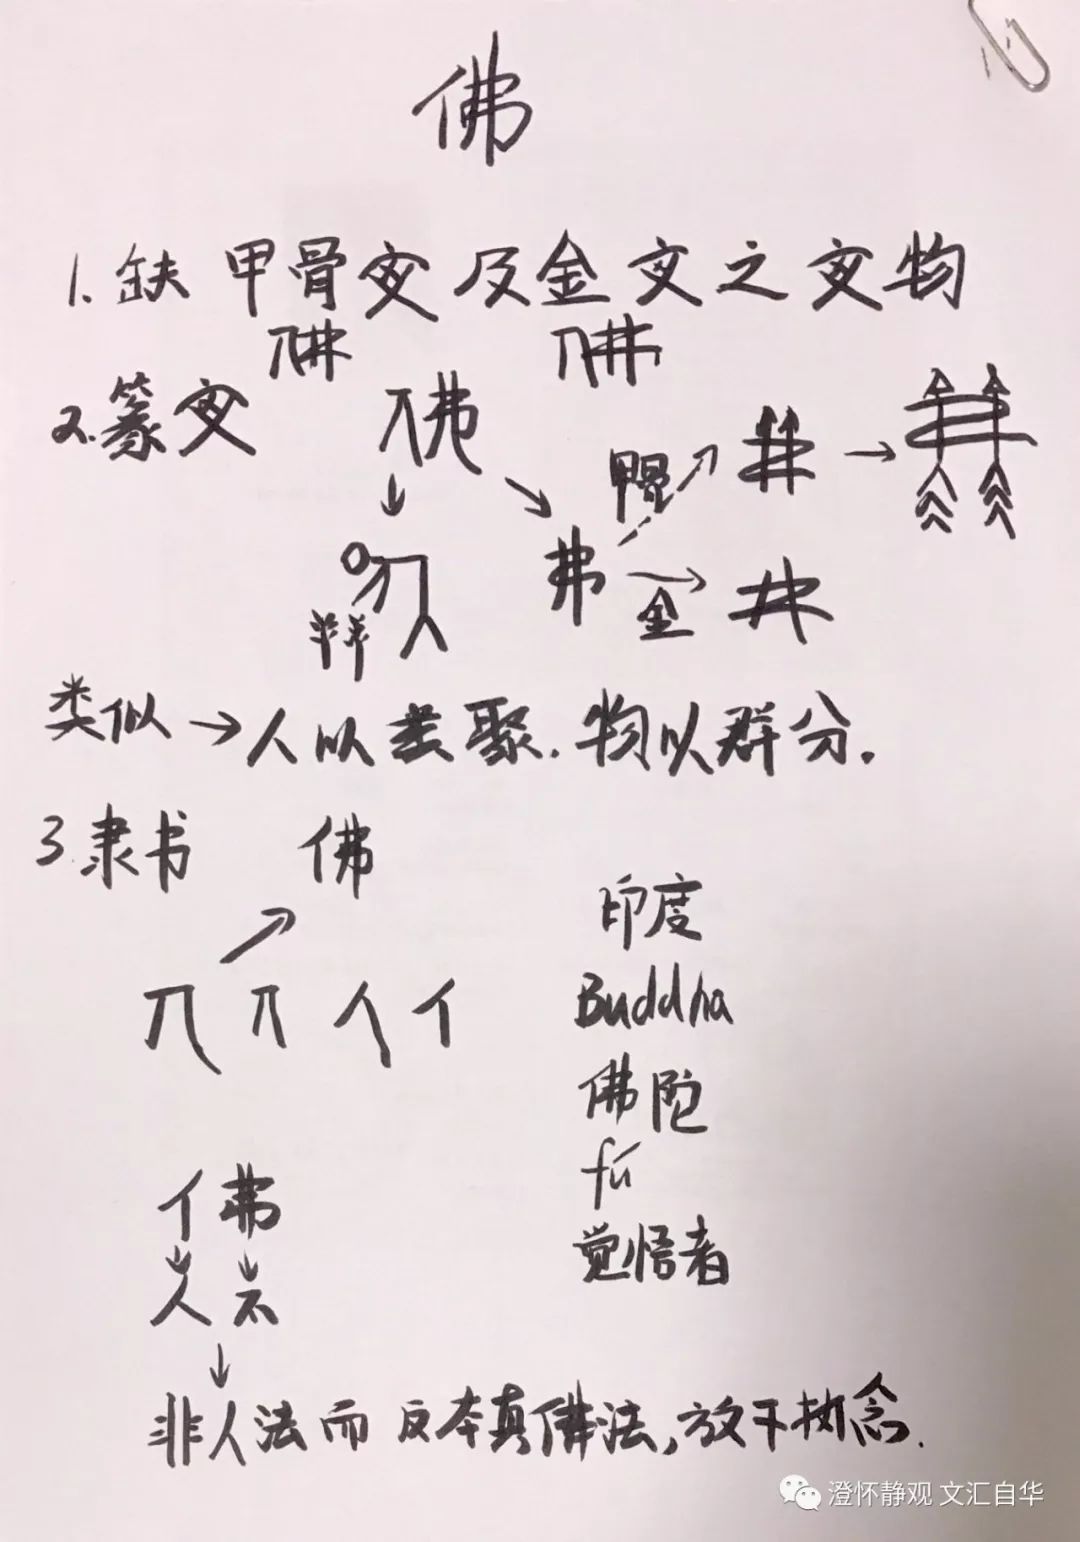 佛
1.缺甲骨文及金文之文物
佛 佛
2.篆文 佛
甲骨
弗
金
羊羊
类似→人以类聚.物以群分.
3.隶书 佛
印度
Buddha
佛陀
fú
觉悟者
人 亻
亻弗
人不
非人法而反本真佛法,放下执念.
澄怀静观 文汇自华